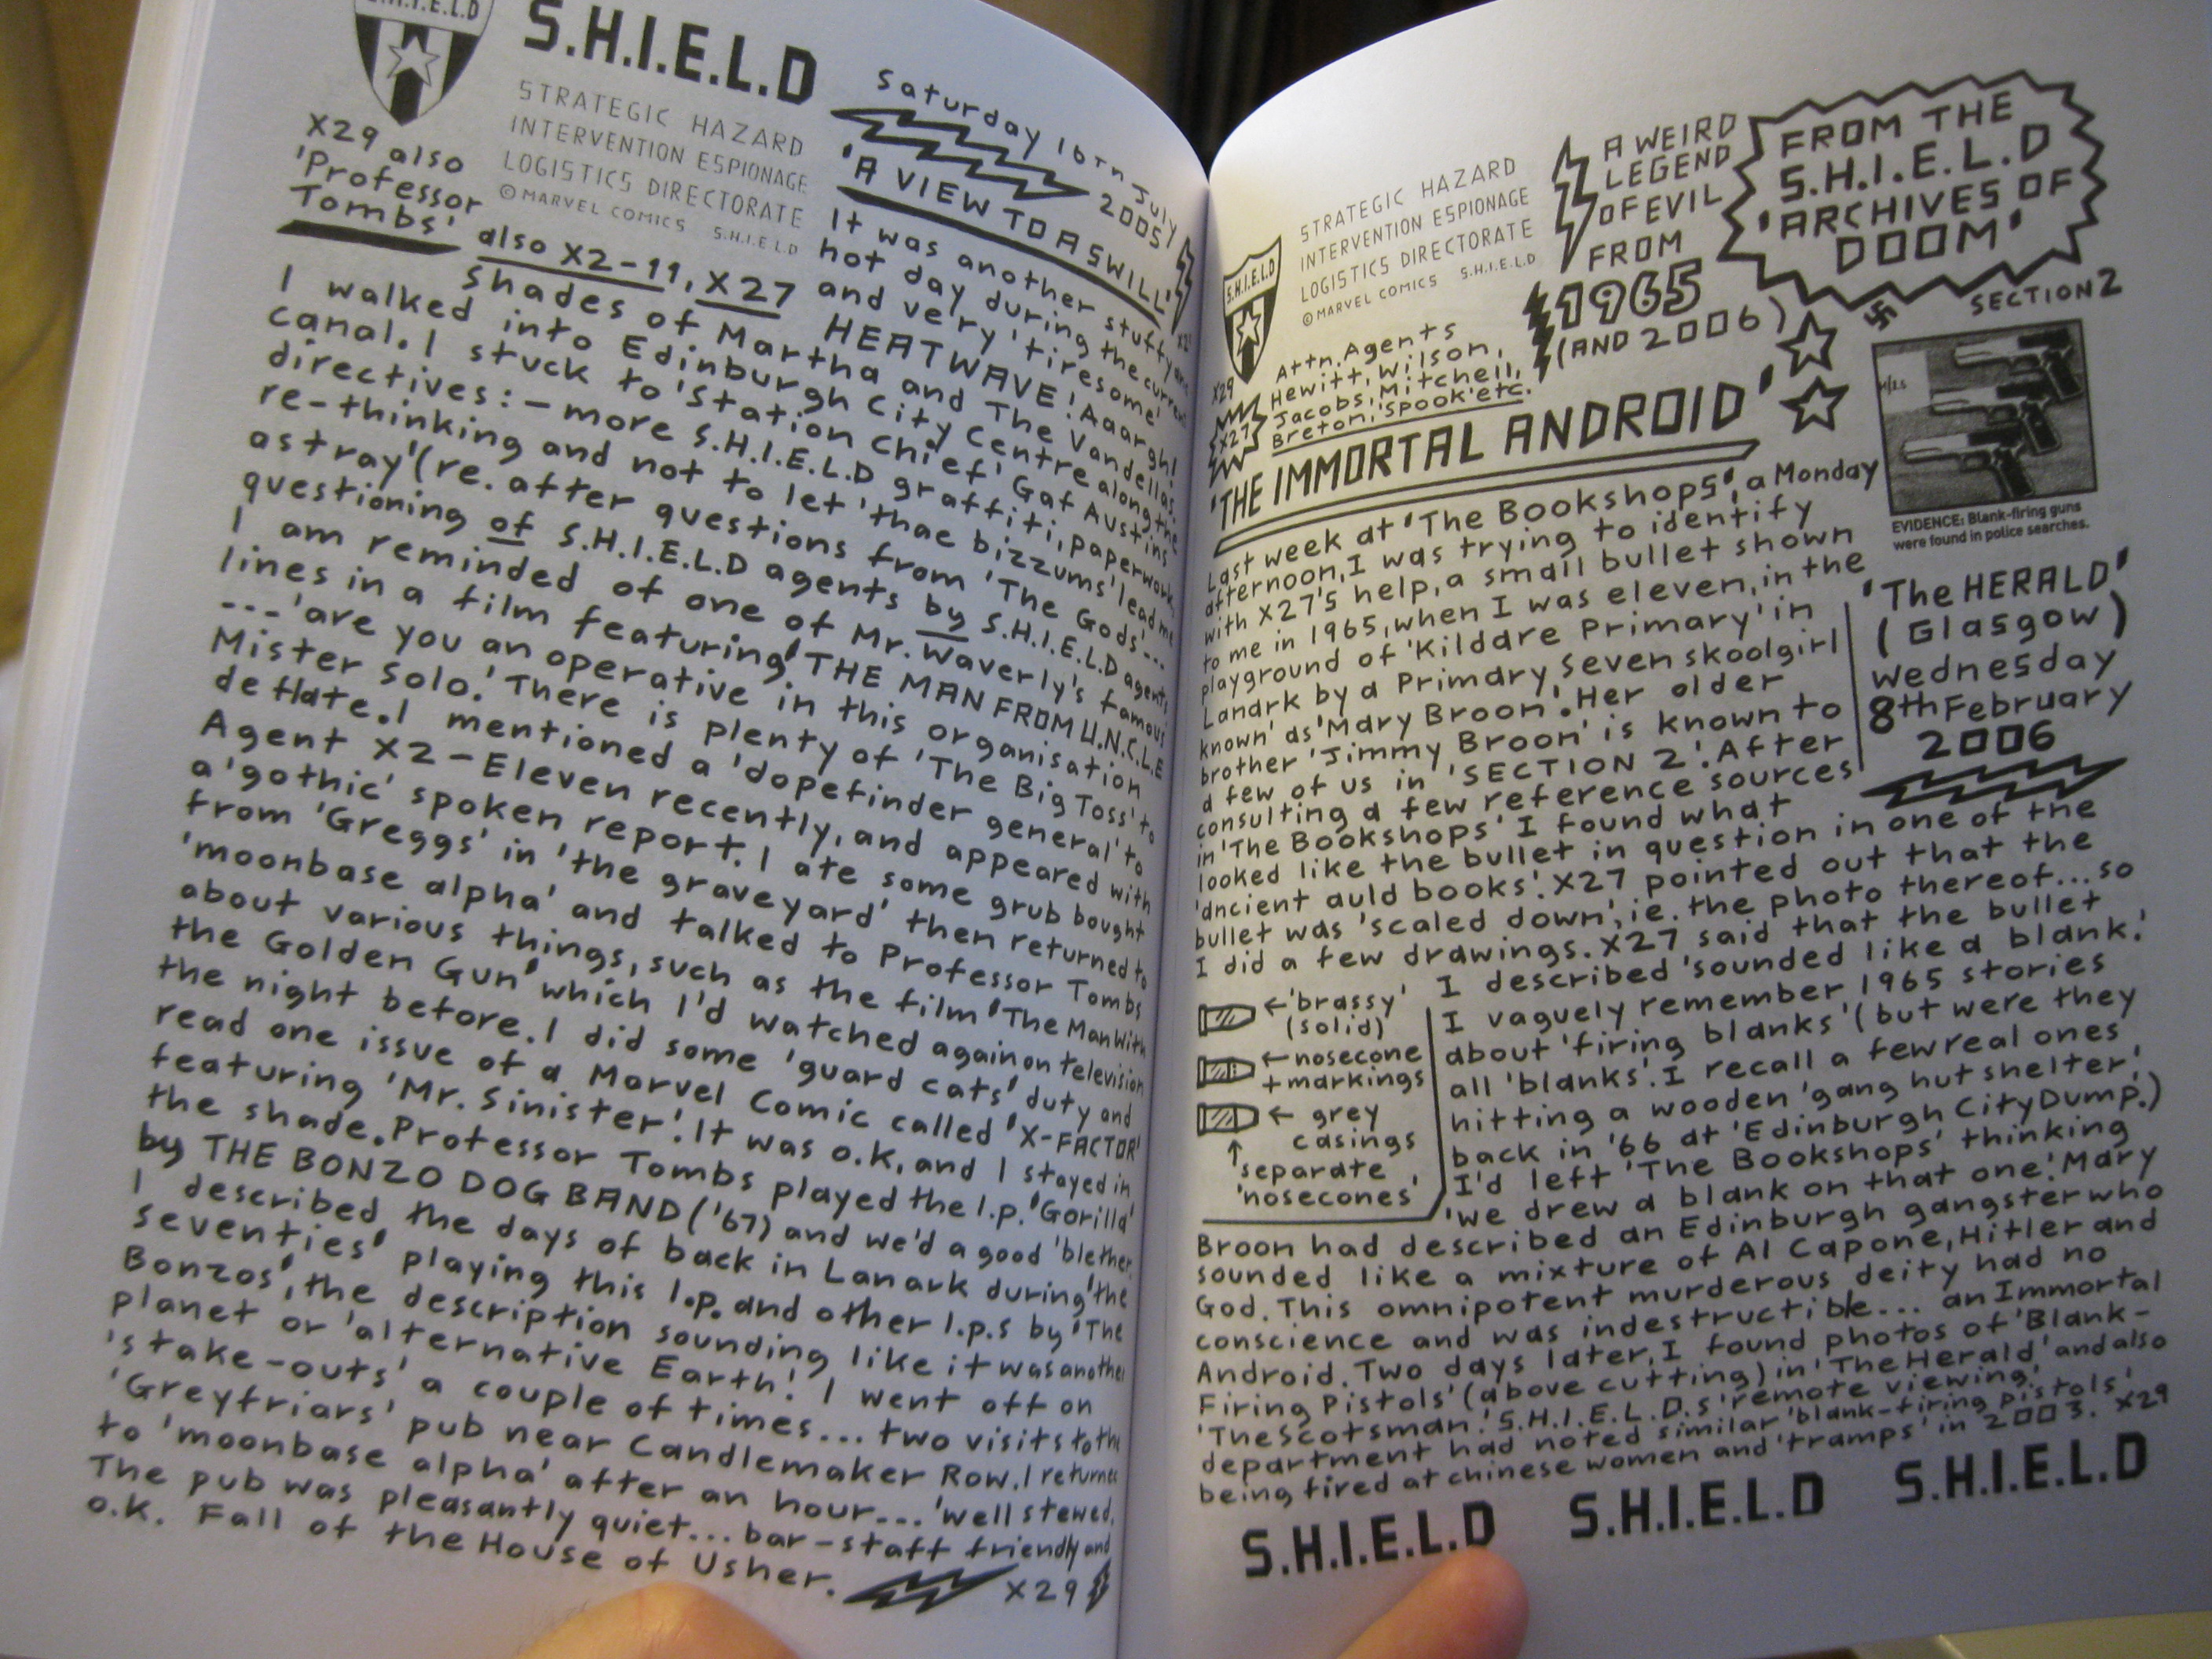 S.H.I.E.L.D
S.H.I.E.L.D
STRATEGIC HAZARD
INTERVENTION ESPIONAGE
LOGISTICS DIRECTORATE
© MARVEL COMICS S.H.I.E.L.D
X29 also
'Professor
Tombs'
also X2-11, X27
Saturday 16TH July
2005
'A VIEW TO A SWILL'
It was another stuffy and
hot day during the current
and very 'tiresome'
HEATWAVE! Aaargh!
Shades of Martha and The Vandellas.
I walked into Edinburgh City Centre along the
canal. I stuck to 'Station Chief' Gaf Austins
directives: - more S.H.I.E.L.D graffiti, paperwork
re-thinking and not to let 'thae bizzums' lead me
astray' (re. after questions from 'The Gods'...
questioning of S.H.I.E.L.D agents by S.H.I.E.L.D agents
I am reminded of one of Mr. Waverly's famous
lines in a film featuring 'THE MAN FROM U.N.C.L.E
---'are you an operative in this organisation
Mister Solo.' There is plenty of 'The Big Toss' to
deflate. I mentioned a 'dopefinder general' to
Agent X2-Eleven recently, and appeared with
a 'gothic' spoken report. I ate some grub bought
from 'Greggs' in 'the graveyard' then returned to
'moonbase alpha' and talked to Professor Tombs
about various things, such as the film 'The Man With
the Golden Gun' which I'd watched again on television
the night before. I did some 'guard cats' duty and
read one issue of a Marvel Comic called 'X-FACTOR'
featuring 'Mr. Sinister'. It was o.k, and I stayed in
the shade. Professor Tombs played the l.p. 'Gorilla'
by THE BONZO DOG BAND ('67) and we'd a good 'blether.
I described the days of back in Lanark during 'the
seventies' playing this l.p. and other l.p.s by 'The
Bonzos', the description sounding like it was another
planet or 'alternative Earth'. I went off on
'stake-outs' a couple of times... two visits to the
'Greyfriars' pub near Candlemaker Row. I returned
to 'moonbase alpha' after an hour... 'well stewed.
The pub was pleasantly quiet... bar-staff friendly and
o.k. Fall of the House of Usher.
X29
S.H.I.E.L.D
STRATEGIC HAZARD
INTERVENTION ESPIONAGE
LOGISTICS DIRECTORATE
© MARVEL COMICS S.H.I.E.L.D
A WEIRD
LEGEND
OF EVIL
FROM
1965
(AND 2006)
FROM THE
S.H.I.E.L.D
'ARCHIVES OF
DOOM'
SECTION 2
X29
X27
Attn. Agents
Hewitt, Wilson,
Jacobs, Mitchell,
Breton, 'Spook' etc.
'THE IMMORTAL ANDROID'
EVIDENCE: Blank-firing guns
were found in police searches.
'The HERALD'
(Glasgow)
Wednesday
8th February
2006
Last week at 'The Bookshops', a Monday
afternoon, I was trying to identify
with X27's help, a small bullet shown
to me in 1965, when I was eleven, in the
playground of 'Kildare Primary' in
Lanark by a Primary Seven skoolgirl
known' as 'Mary Broon'. Her older
brother 'Jimmy Broon' is known to
a few of us in 'SECTION 2'. After
consulting a few reference sources
in 'The Bookshops' I found what
looked like the bullet in question in one of the
'ancient auld books'. X27 pointed out that the
bullet was 'scaled down', ie. the photo thereof... so
I did a few drawings. X27 said that the bullet
I described 'sounded like a blank.'
←'brassy'
(solid)
←nosecone
+markings
← grey
casings
↑
'separate
'nosecones'
I vaguely remember 1965 stories
about 'firing blanks' (but were they
all 'blanks'. I recall a few real ones
hitting a wooden 'gang hut shelter,'
back in '66 at 'Edinburgh City Dump.)
I'd left 'The Bookshops' thinking
'we drew a blank on that one.' Mary
Broon had described an Edinburgh gangster who
sounded like a mixture of Al Capone, Hitler and
God. This omnipotent murderous deity had no
conscience and was indestructible... an Immortal
Android. Two days later, I found photos of 'Blank-
Firing Pistols' (above cutting) in 'The Herald' and also
'The Scotsman.' S.H.I.E.L.D.s 'remote viewing'
department had noted similar 'blank-firing pistols'
being fired at chinese women and 'tramps' in 2003. X29
S.H.I.E.L.D S.H.I.E.L.D S.H.I.E.L.D